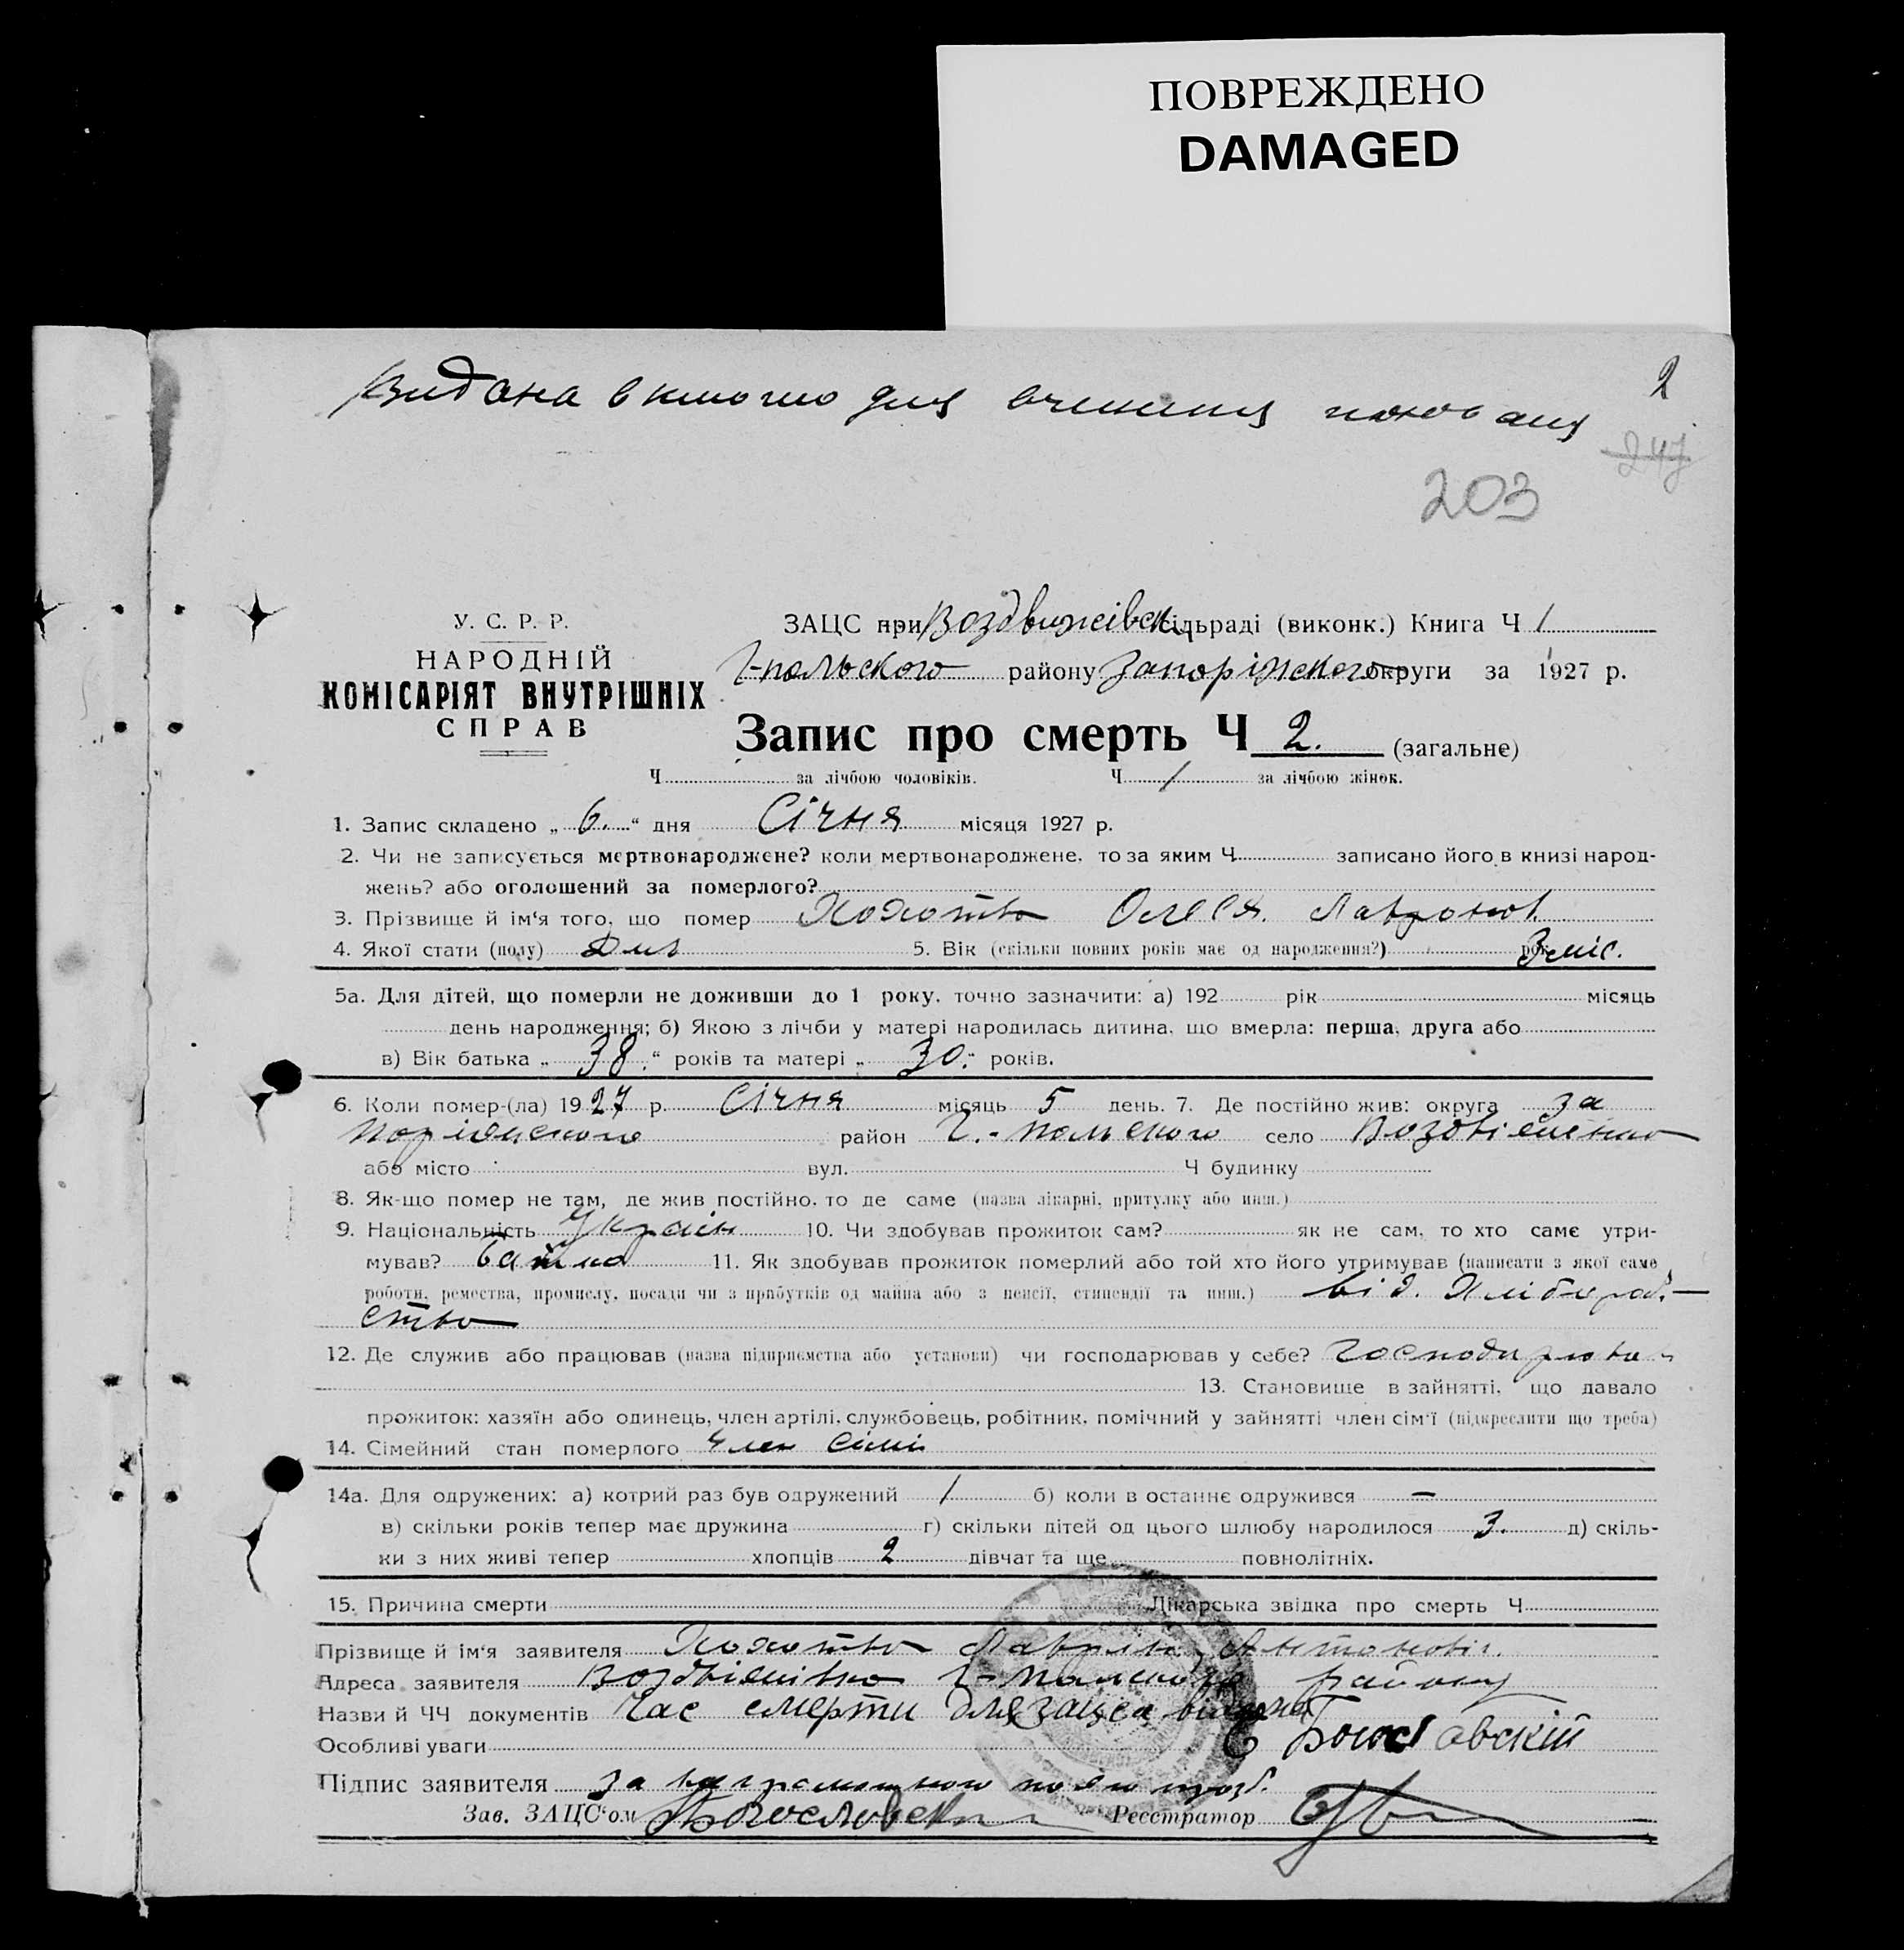 ПОВРЕЖДЕНО
DAMAGED
Видана для
2
247
203
У. С. Р. Р.
НАРОДНІЙ
КОМІСАРІЯТ ВНУТРІШНІХ
СПРАВ
ЗАЦС при Воздвижівськ сільраді (виконк.) Книга Ч 1
Г-польского району Запоріжского округи за 1927 р.
Запис про смерть Ч 2. (загальне)
Ч за лічбою чоловіків. Ч 1 за лічбою жінок.
1. Запис складено „ 6. “ дня Січня місяця 1927 р.
2. Чи не записується мертвонароджене? коли мертвонароджене, то за яким Ч записано його в книзі народ-
жень? або оголошений за померлого?
3. Прізвище й ім'я того, що помер Олеся
4. Якої стати (полу) 5. Вік (скільки повних років має од народження?) рок 3 міс.
5а. Для дітей, що померли не доживши до 1 року, точно зазначити: а) 192 рік місяць
день народження; б) Якою з лічби у матері народилась дитина, що вмерла: перша, друга або
в) Вік батька „ 38. “ років та матері „ 30. “ років.
6. Коли помер-(ла) 1927 р. Січня місяць 5 день. 7. Де постійно жив: округа За
поріжского район Г.-польского село
або місто вул. Ч будинку
8. Як-що помер не там, де жив постійно, то де саме (назва лікарні, притулку або инш.)
9. Національність Україн 10. Чи здобував прожиток сам? як не сам, то хто саме утри-
мував? батько 11. Як здобував прожиток померлий або той хто його утримував (написати з якої саме
роботи, ремества, промислу, посади чи з прибутків од майна або з пенсії, стипендії та инш.) від. Хлібороб.-
ство
12. Де служив або працював (назва підприємства або установи) чи господарював у себе? Господарюва
13. Становище в зайнятті, що давало
прожиток: хазяїн або одинець, член артілі, службовець, робітник, помічний у зайнятті член сім'ї (підкреслити що треба)
14. Сімейний стан померлого Член сімі
14а. Для одружених: а) котрий раз був одружений / б) коли в останнє одружився —
в) скільки років тепер має дружина г) скільки дітей од цього шлюбу народилося 3. д) скіль-
ки з них живі тепер хлопців 2 дівчат та ще повнолітніх.
15. Причина смерти Лікарська звідка про смерть Ч
Прізвище й ім'я заявителя Антонович
Адреса заявителя Воздвіжівка Г-польского району
Назви й ЧЧ документів Час смерти для зацса
Особливі уваги
Підпис заявителя За неграмотного
Зав. ЗАЦС'ом Богословск Реєстратор